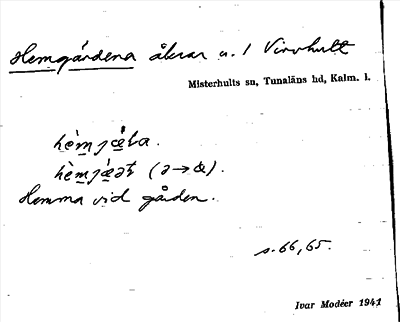 Hemgårdena åkrar u. 1 Virvhult
Misterhults sn, Tunaläns hd, Kalm. l.
hèmjǽta.
hèmjǽət (ə→æ).
Hemma vid gården.
s. 66, 65.
Ivar Modéer 1941